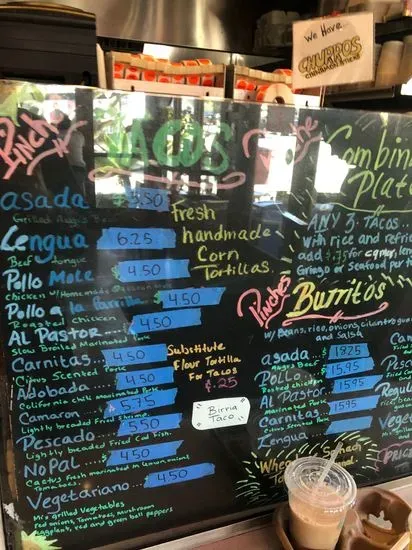 We Have
CHURROS
CINNAMON STICKS
Pincho
TACOS
asada $5.50
Grilled Angus Beef
Lengua 6.25
Beef Tongue
Pollo Mole 4.50
Chicken w/Homemade
Pollo a la Parrilla 4.50
Roasted chicken
AL Pastor 4.50
Slow Broiled Marinated Pork
Carnitas... 4.50
Citrus Scented Pork
Adobada 4.50
California chili marinated Pork
Camaron 5.75
Lightly breaded Fried Shrimp
Pescado 5.50
Lightly breaded Fried Cod Fish
NoPal 4.50
Cactus Fresh marinated in lemon, onion
Tomatoes.
Vegetariano... 4.50
Mix grilled Vegetables
red onions, Tomatoes, Mushroom
eggplant, red and green bell peppers
Fresh
handmade
Corn
Tortillas
Substitute
Flour Tortilla
For Tacos
$.25
Birria
Taco
Pinche
Combin
Plat
ANY 3 TACOS
with rice and refrie
add
Gringo or Seafood per
Pinches
Burritos
w/Beans, rice, onions, cilantro, guac
and Salsa
asada 18.25
Angus Beef
Pollo 15.95
Roasted chicken
AL Pastor 15.95
Marinated Pork
Carnitas 15.95
Citrus Scented Pork
Lengua
Ca
Pesc
Regu
Veg
PRICE